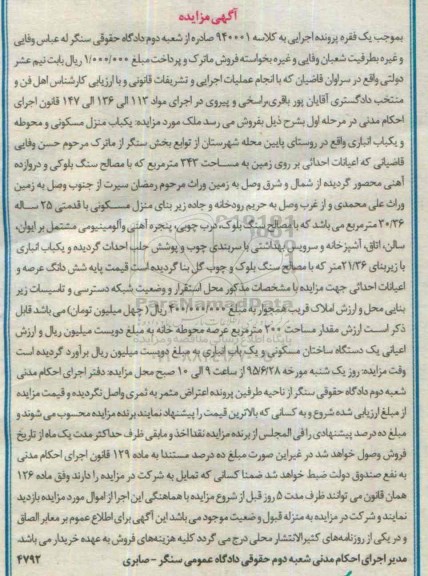 آگهی مزایده
بموجب یک فقره پرونده اجرایی به کلاسه ۹۴۰۰۰۱ صادره از شعبه دوم دادگاه حقوقی سنگر له عباس وفایی
و غیره بطرفیت شعبان وفایی و غیره بخواسته فروش ماترک و پرداخت مبلغ ۱/۰۰۰/۰۰۰ ریال بابت نیم عشر
دولتی واقع در سراوان قاضیان که با انجام عملیات اجرایی و تشریفات قانونی و با ارزیابی کارشناس اهل فن و
منتخب دادگستری آقایان پور باقری،راسخی و پیروی در اجرای مواد ۱۱۳ الی ۱۲۶ الی ۱۴۷ قانون اجرای
احکام مدنی در مرحله اول بشرح ذیل بفروش می رسد ملک مورد مزایده: یکباب منزل مسکونی و محوطه
و یکباب انباری واقع در روستای پایین محله شهرستان از توابع بخش سنگر از ماترک مرحوم حسن وفایی
قاضیانی که اعیانات احداثی بر روی زمین به مساحت ۳۴۲ مترمربع که با مصالح سنگ بلوکی و دروازده
آهنی محصور گردیده از شمال و شرق وصل به زمین وراث مرحوم رمضان سیرت از جنوب وصل به زمین
وراث علی محمدی و از غرب وصل به حریم رودخانه و جاده زیر بنای منزل مسکونی با قدمتی ۲۵ ساله
۳۰/۳۶ مترمربع می باشد که با مصالح سنگ بلوک، درب چوبی، پنجره آهنی وآلومینیومی مشتمل بر ایوان،
سالن، اتاق، آشپزخانه و سرویس بهداشتی با سربندی چوب و پوشش حلب احداث گردیده و یکباب انباری
با زیربنای ۲۱/۳۶متر که با مصالح سنگ بلوک و چوب گل بنا گردیده است قیمت پایه شش دانگ عرصه و
اعیانات احداثی جهت مزایده با مشخصات مذکور محل استقرار و وضعیت شبکه دسترسی و تاسیسات زیر
بنایی محل و ارزش املاک قریب همجوار به مبلغ ۴۰۰/۰۰۰/۰۰۰ ریال ( چهل میلیون تومان) می باشد قابل
ذکر است ارزش مقدار مساحت ۲۰۰ مترمربع عرصه محوطه خانه به مبلغ دویست میلیون ریال و ارزش
اعیانی یک دستگاه ساختان مسکونی و یک باب انباری به مبلغ دویست میلیون ریال برآورد گردیده است
وقت مزایده: روز یک شنبه مورخه ۹۵/۶/۲۸ از ساعت ۹ الی ۱۰ صبح محل مزایده: دفتر اجرای احکام مدنی
شعبه دوم دادگاه حقوقی سنگر از ناحیه طرفین پرونده اعتراض مثمر به ثمری واصل نگردیده و قیمت مزایده
از مبلغ ارزیابی شده شروع و به کسانی که بالاترین قیمت را پیشنهاد نمایند برنده مزایده محسوب می شوند و
مبلغ ده درصد پیشنهادی رافی المجلس از برنده مزایده نقدا اخذ و مابقی ظرف حداکثر مدت یک ماه از تاریخ
فروش وصول خواهد شد در غیراین صورت مبلغ ده درصد مستندا به ماده ۱۲۹ قانون اجرای احکام مدنی
به نفع صندوق دولت ضبط خواهد شد ضمنا کسانی که تمایل به شرکت در مزایده را دارند وفق ماده ۱۲۶
همان قانون می توانند ظرف مدت ۵ روز قبل از شروع مزایده با هماهنگی این اجرا از اموال مورد مزایده بازدید
نمایند و شرکت در مزایده به منزله قبول و ضعیت موجود می باشد این آگهی برای اطلاع عموم بر معابر الصاق
و در یکی از روزنامه‌های کثیرالانتشار محلی درج می گردد کلیه هزینه‌های فروش به عهده خریدار می باشد.
مدیر اجرای احکام مدنی شعبه دوم حقوقی دادگاه عمومی سنگر - صابری ۴۷۹۲